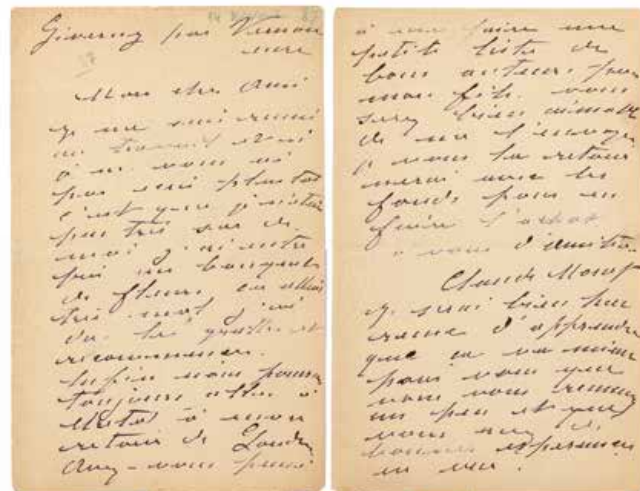 Giverny par Vernon
eure
Mon cher Ami
Je me suis remis
au travail et si
je ne vous ai
pas écrit plus tôt
c'est que j'étais
pas très sûr de
moi j'ai entre
pris un bouquet
de fleurs ça allait
très mal j'ai
du le gratter et
recommencer.
Enfin nous pourrons
toujours aller à
à mon
retour de Londres
Avez-vous pensé
à me faire une
petite liste de
bons auteurs pour
mon fils. vous
serez bien aimable
de me l'envoyer
je vous la retour
nerai avec les
fonds pour en
faire l'achat
à vous d'amitié
Claude Monet
je serai bien heu
reux d'apprendre
que ça va mieux
pour vous que
vous vous remuez
un peu et que
vous avez de
bonnes espérances
en vue.